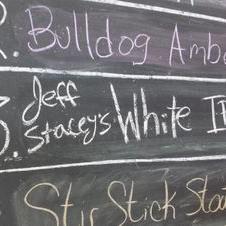 2. Bulldog Amb
3. Jeff Stacey's White I
Stir Stick Sto